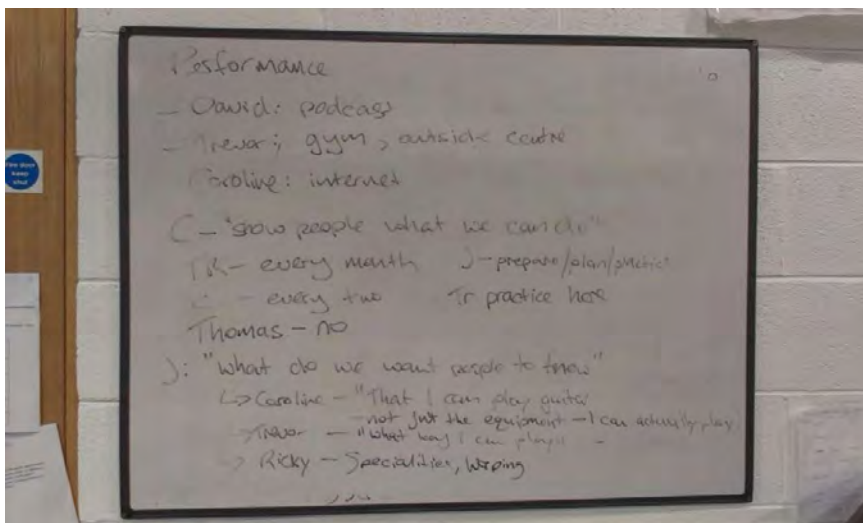 Performance
- David: podcast
- Trevor: gym, outside centre
Caroline: internet
C - "show people what we can do"
TR - every month J - prepare/plan/practice
- every two Tr practice here
Thomas - no
J: "what do we want people to know"
↳ Caroline - "That I can play guitar
- not just the equipment - I can actually play
→ Trevor - "What way I can play" -
→ Ricky - Specialities,
Fire door
keep
shut